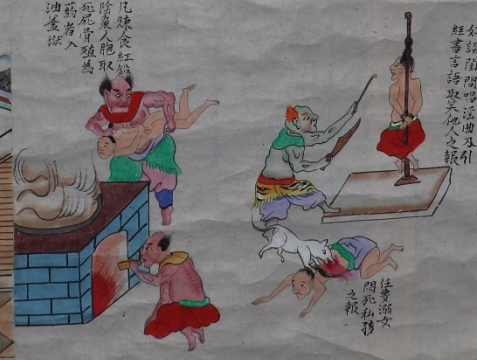 好談閨閫唱淫曲及引
經書言語取笑他人之報
凡煉食紅鉛
陰棗人胞取
死屍骨殖為
藥者入
油釜獄
任妻溺女
悶死私孩
之報